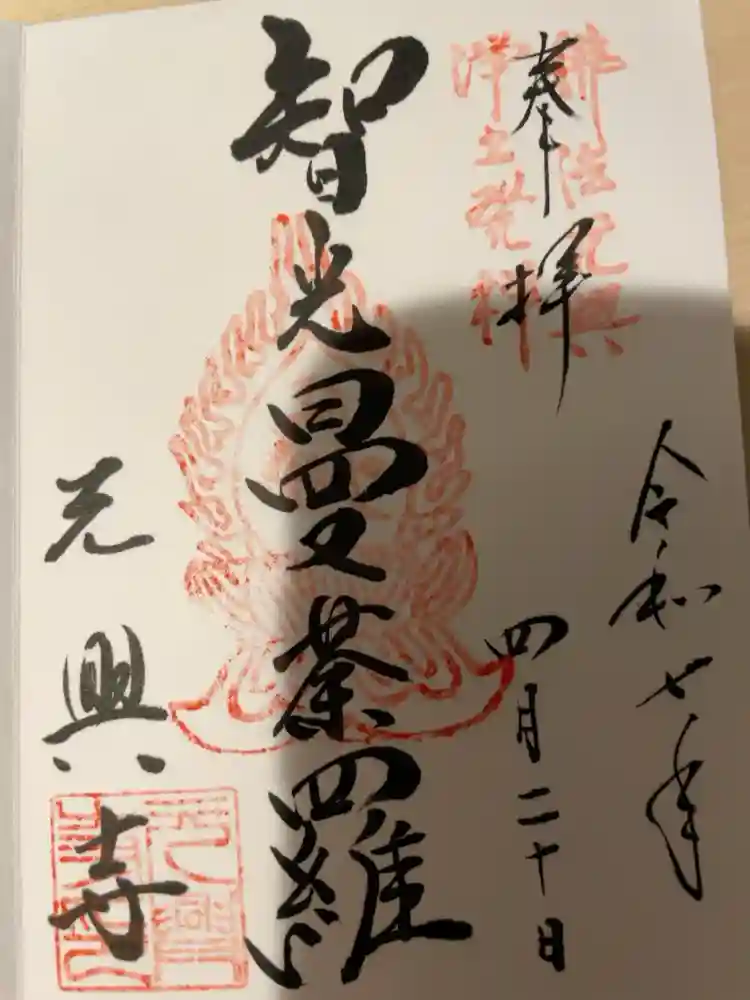 令和七年
四月二十日
奉拝
佛法元興
浄土発祥
智光曼荼羅
元興寺